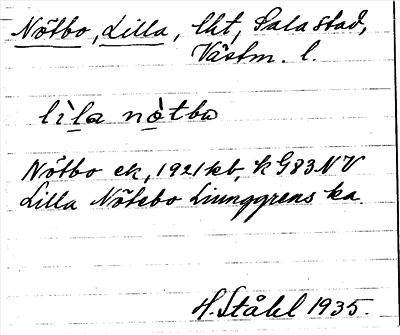 Nötbo, Lilla, lht, Sala stad,
Västm. l.
lìla nòtbo
Nötbo ek, 1921 kb, k G83 NV
Lilla Nötebo Ljunggrens ka.
H. Ståhl 1935.